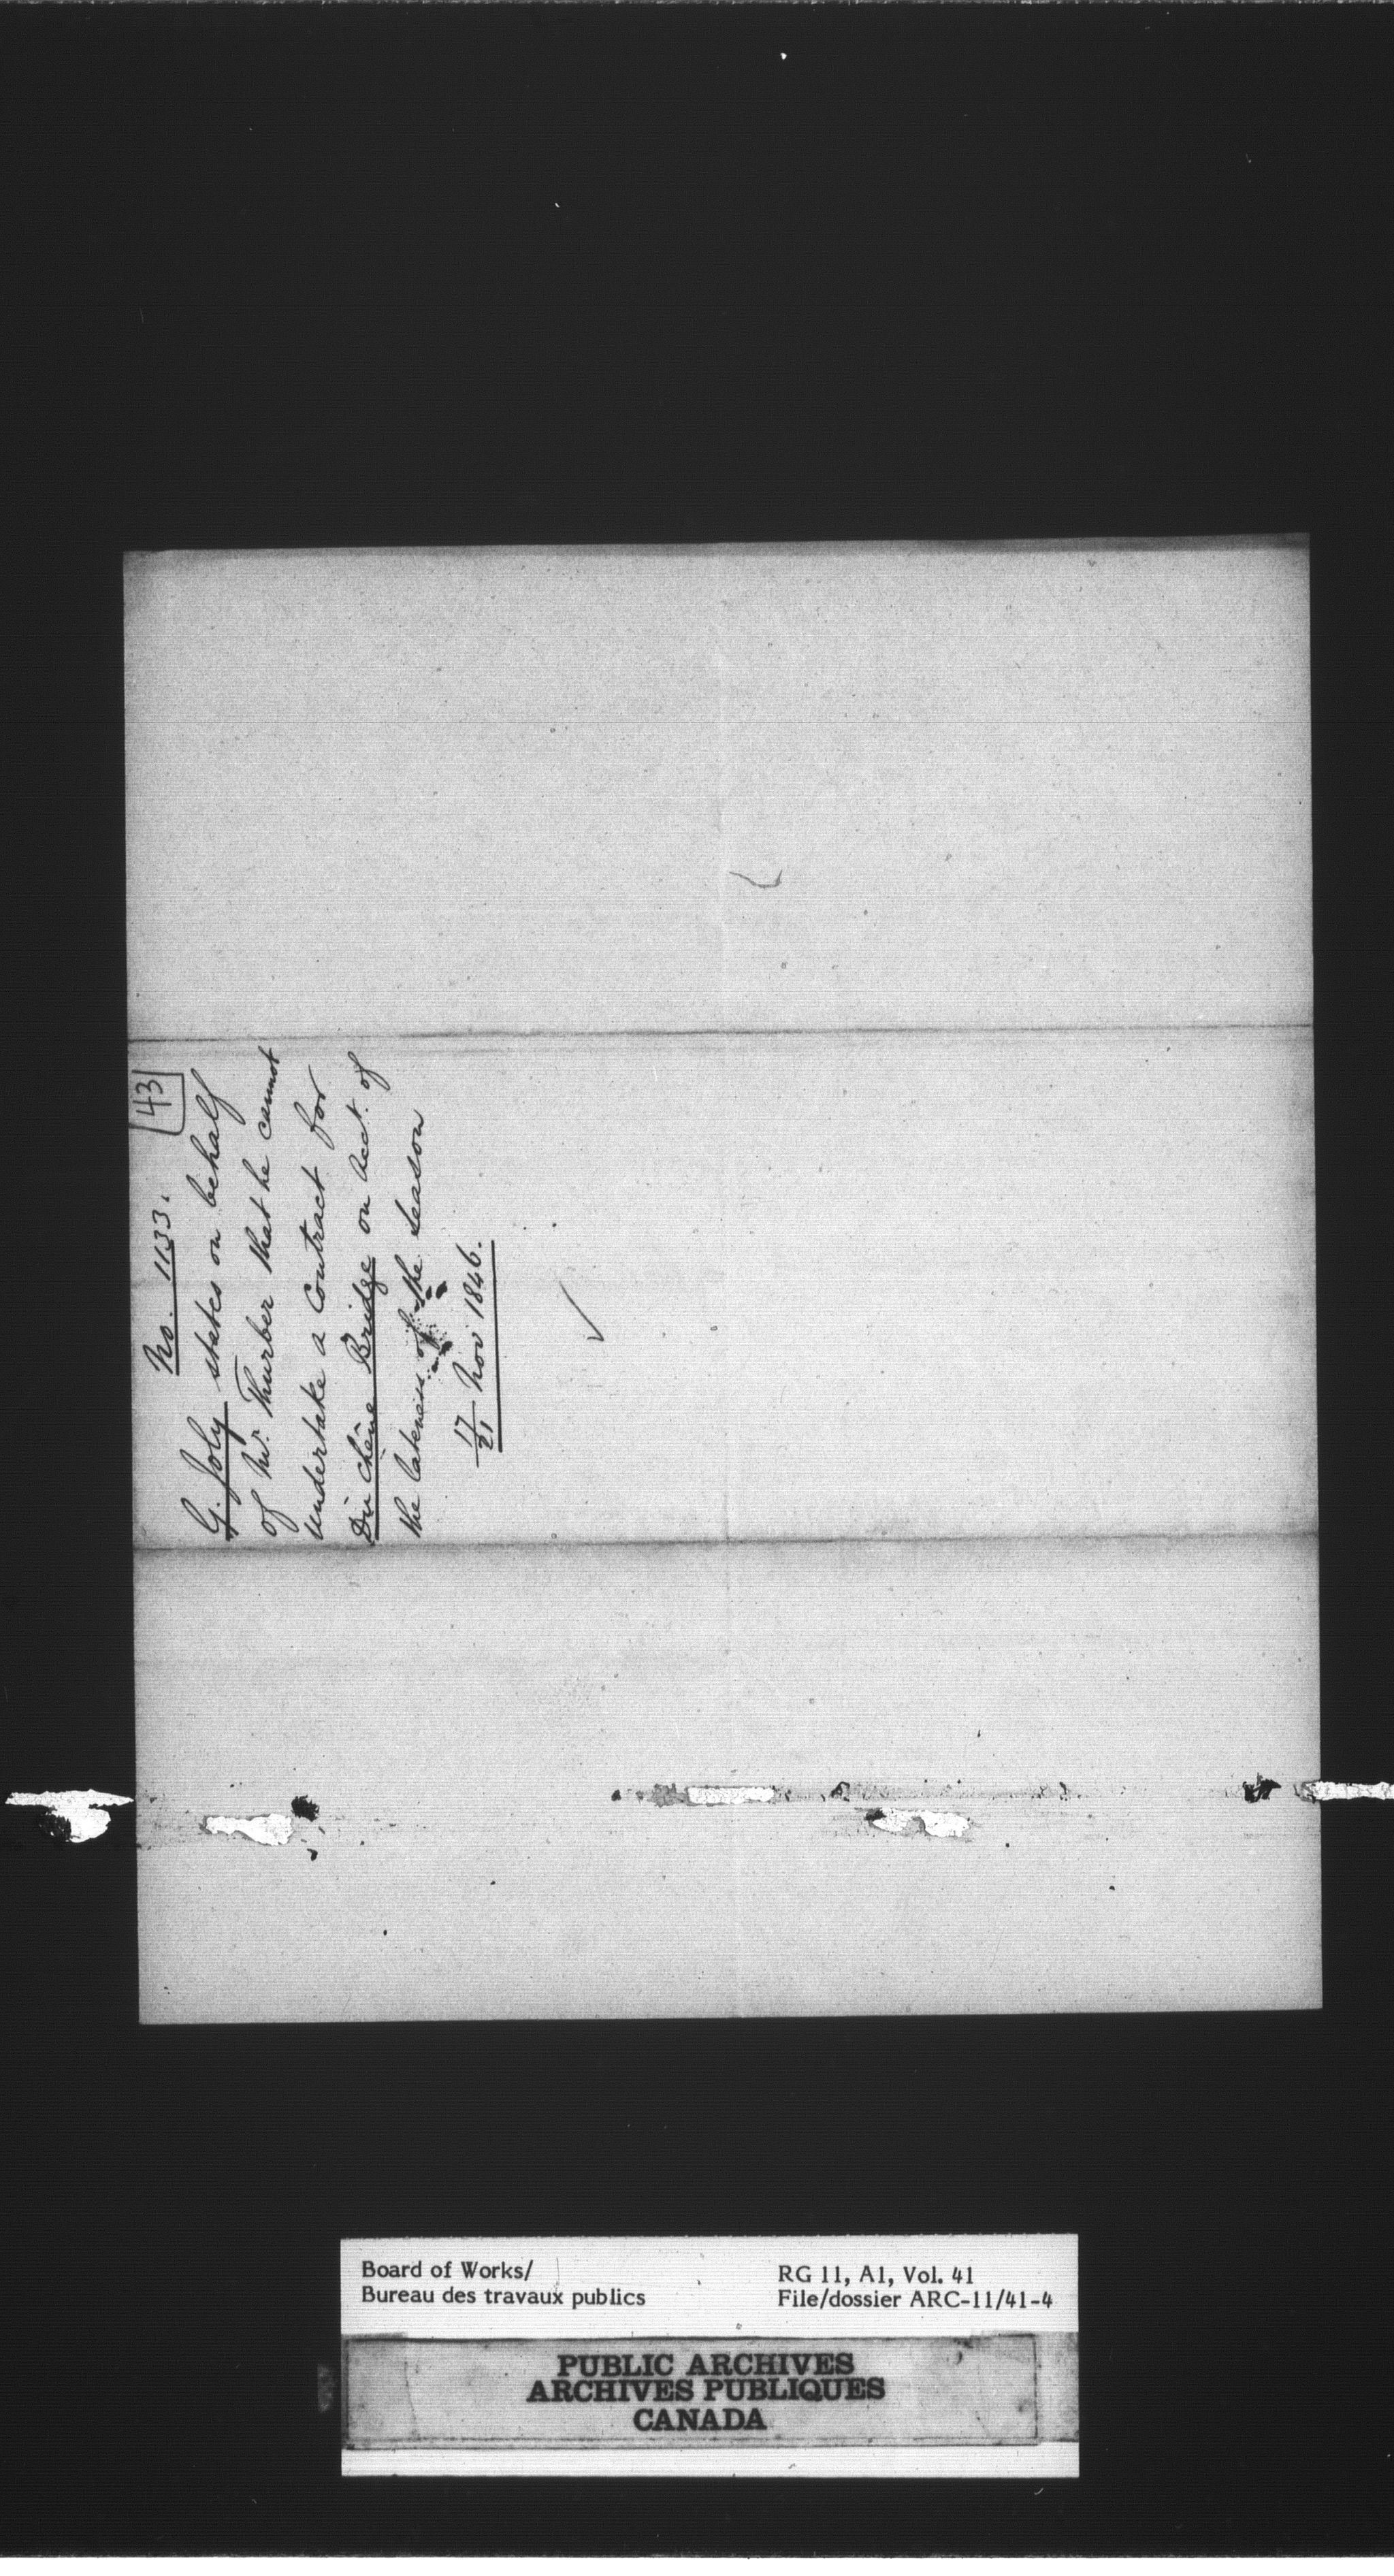 43
No. 1133.
G. Joly states on behalf
of Mr. Thurber that he cannot
undertake a Contract for
Du Chêne Bridge on Acct. of
the lateness of the Season
17/21 Nov 1846.
Board of Works/
Bureau des travaux publics
RG 11, A1, Vol. 41
File/dossier ARC-11/41-4
PUBLIC ARCHIVES
ARCHIVES PUBLIQUES
CANADA